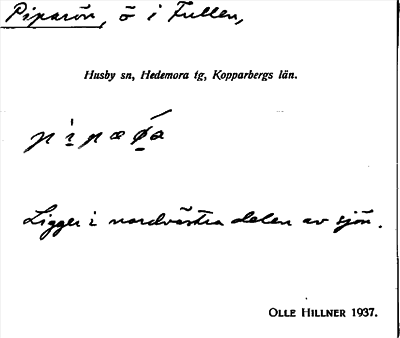 Piparön, ö i Fullen,
Husby sn, Hedemora tg, Kopparbergs län.
Ligger i nordvästra delen av sjön.
OLLE HILLNER 1937.